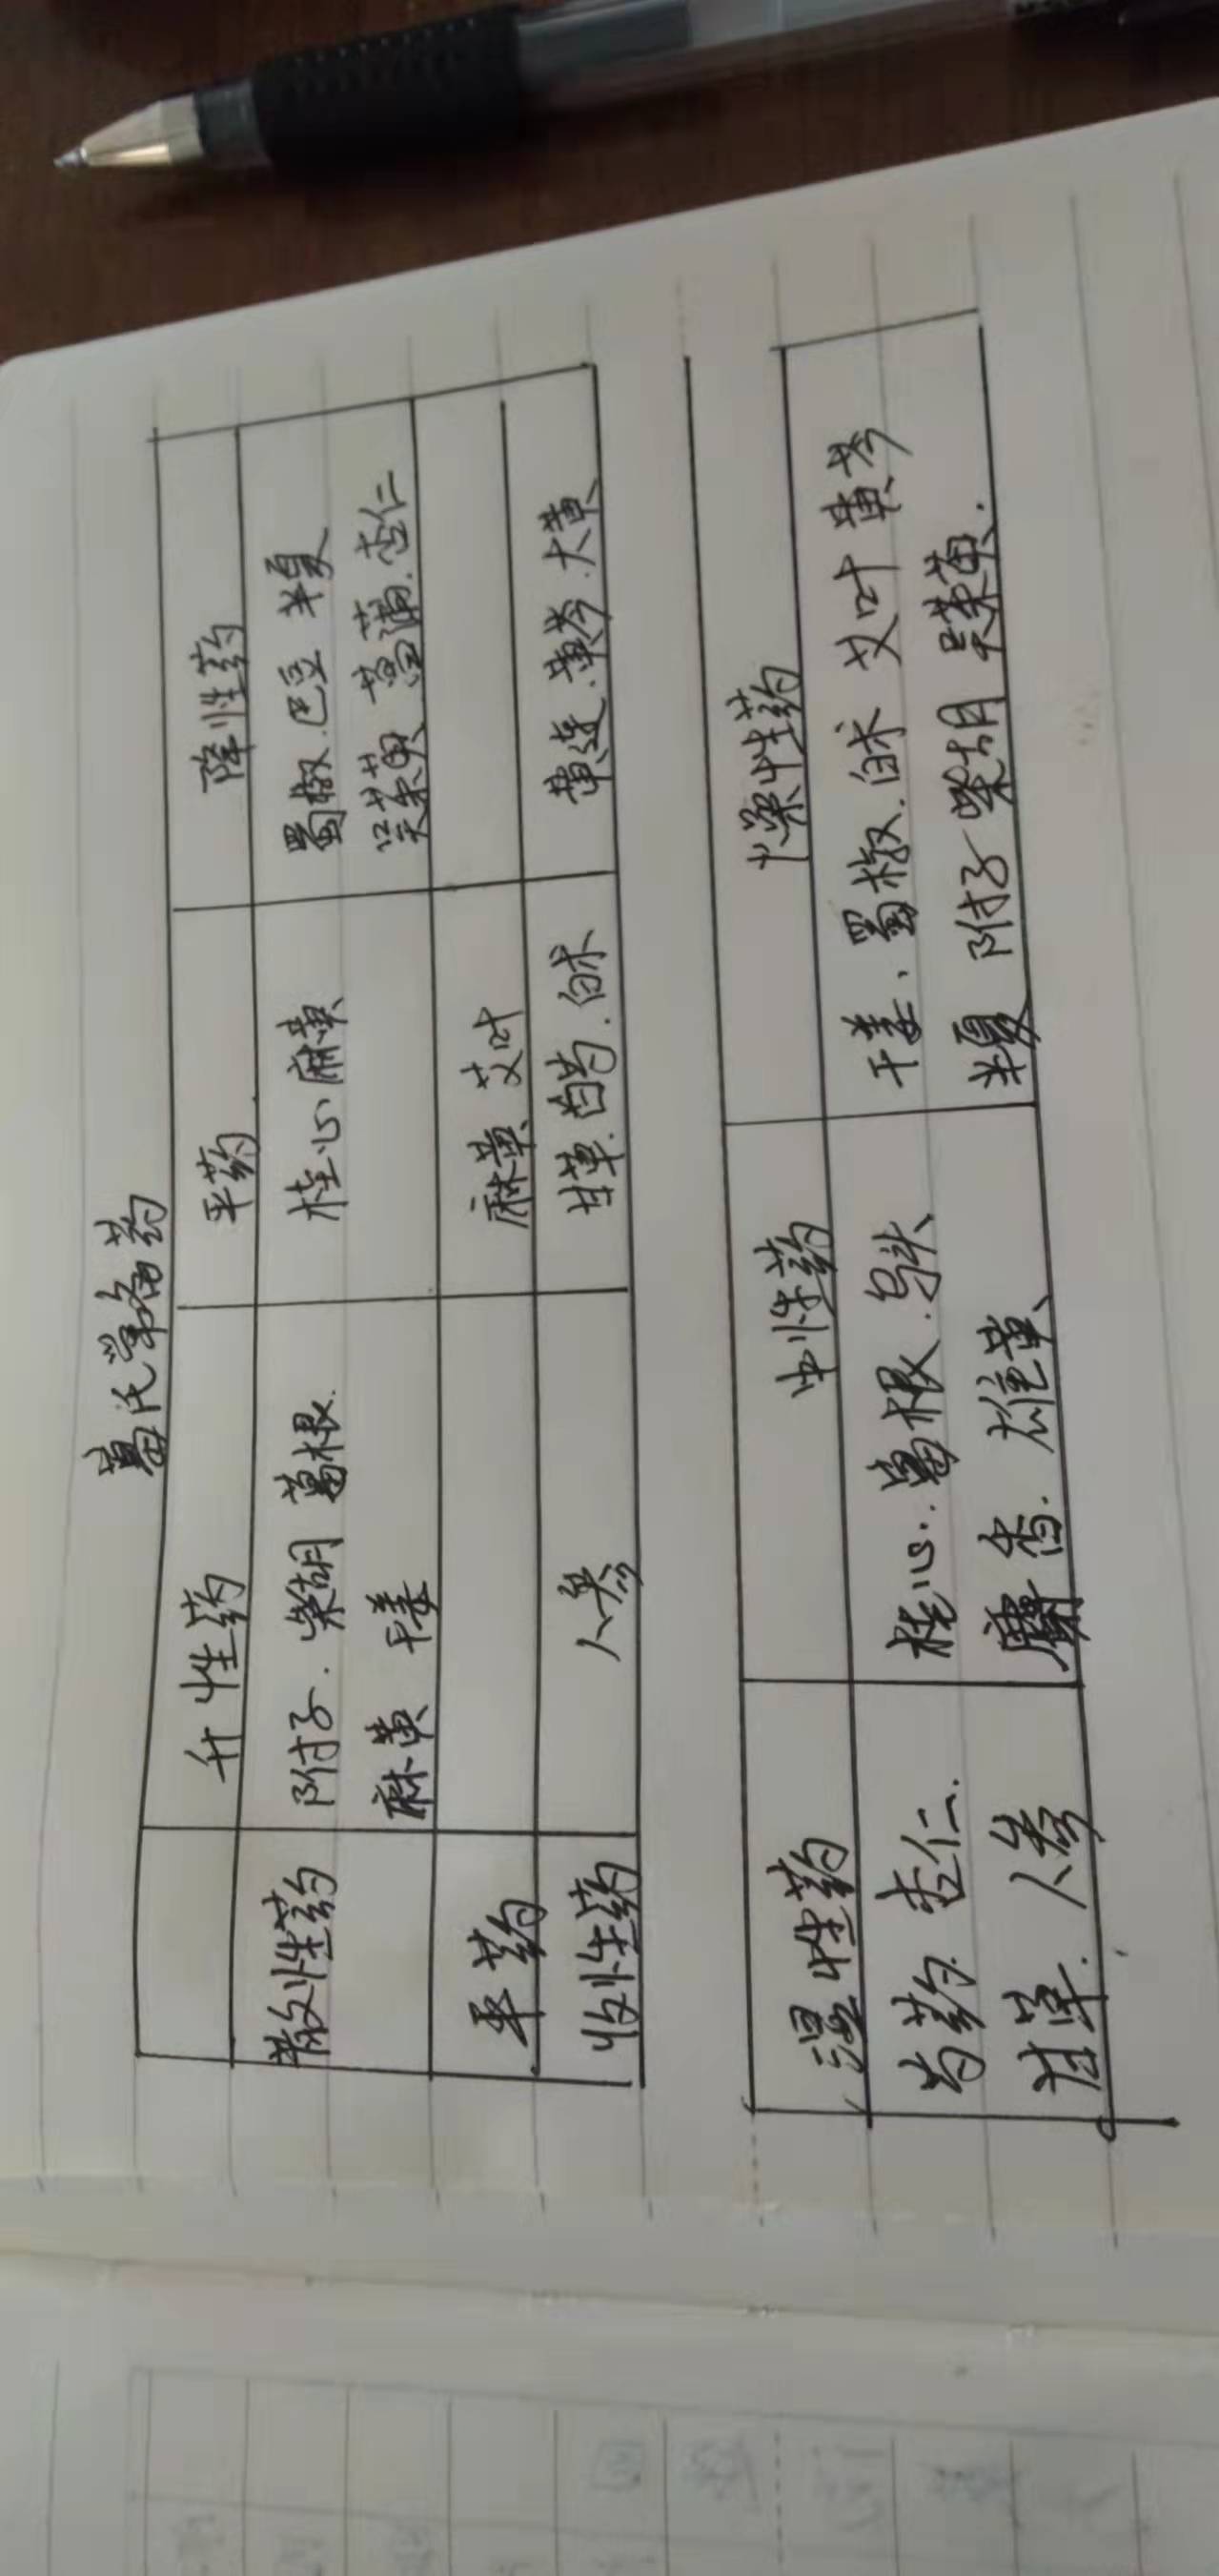 葛氏常备药
升性药 平药 降性药
散性药 附子.柴胡 葛根. 桂心 麻黄 蜀椒.巴豆 半夏
麻黄 干姜 吴茱萸 菖蒲.杏仁
平药 麻黄 艾叶
收性药 人参 甘草.白芍.白术 黄连.黄芩.大黄
湿性药 中性药 燥性药
芍药.杏仁. 桂心.葛根.乌头 干姜、蜀椒.白术 艾叶 黄芩
甘草.人参 麝香.雄黄 半夏 附子 柴胡 吴茱萸.